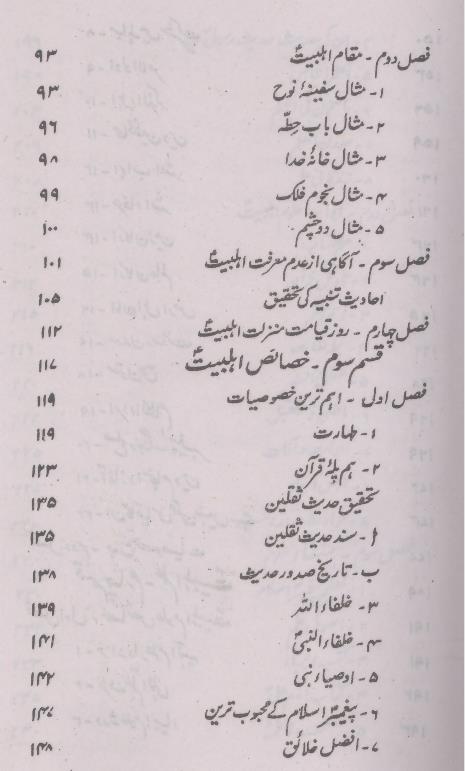 فصل دوم - مقام اہلبیتؑ ۹۳
۱- مثال سفینۂ نوح ۹۳
۲- مثال باب حِطّہ ۹۶
۳- مثال خانۂ خدا ۹۸
۴- مثال نجوم فلک ۹۹
۵- مثال دو چشم ۱۰۰
فصل سوم - آگاہی از عدم معرفت اہلبیتؑ ۱۰۱
احادیث تنبیہ کی تحقیق ۱۰۵
فصل چہارم - روز قیامت منزلت اہلبیتؑ ۱۱۲
قسم سوم - خصائص اہلبیتؑ ۱۱۷
فصل اول - اہم ترین خصوصیات ۱۱۹
۱- طہارت ۱۱۹
۲- ہم پلۂ قرآن ۱۲۳
تحقیق حدیث ثقلین ۱۳۵
أ- سند حدیث ثقلین ۱۳۵
ب- تاریخ صدور حدیث ۱۳۸
۳- خلفاء اللہ ۱۳۹
۴- خلفاء النبیؐ ۱۴۱
۵- اوصیاء نبی ۱۴۲
۶- پیغمبرؐ اسلام کے محبوب ترین ۱۴۷
۷- افضل خلائق ۱۴۸